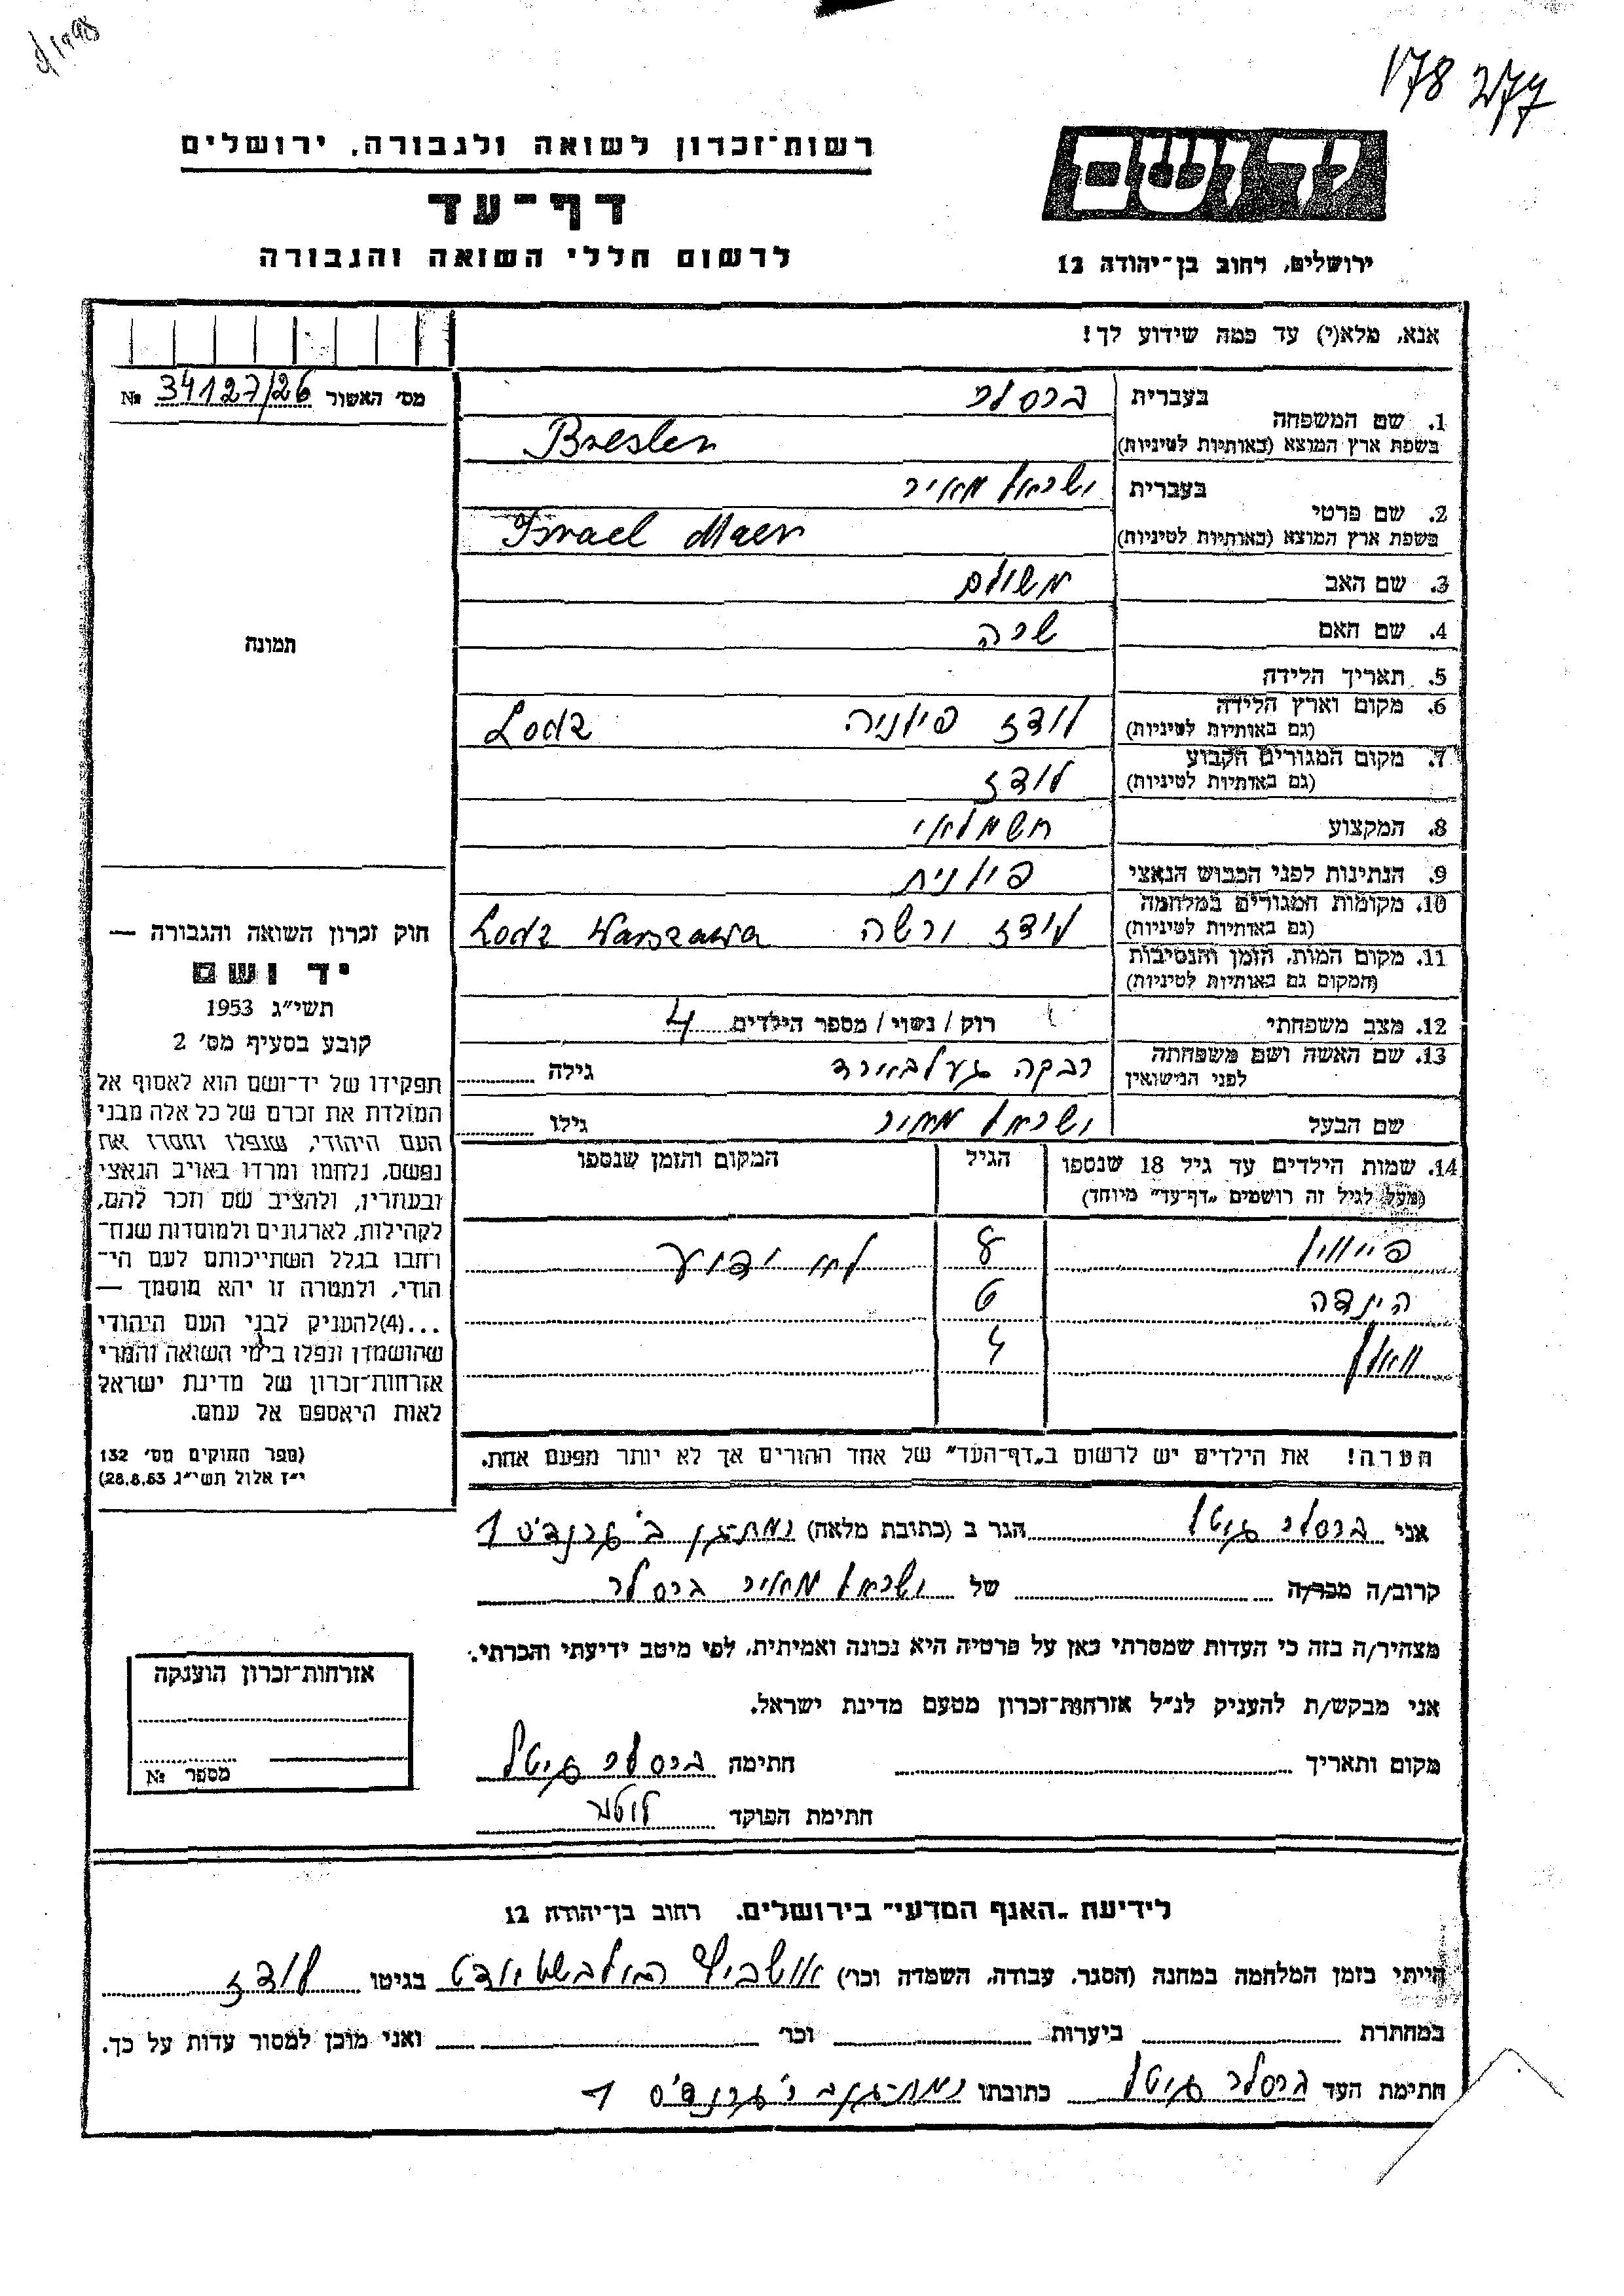 178 277
רשות־זכרון לשואה ולגבורה, ירושלים
דף־עד
לרשום חללי השואה והגבורה
יד ושם
ירושלים, רחוב בן־יהודה 12
אנא, מלא(י) עד כמה שידוע לך!
מס׳ האשור 34127/26 №
תמונה
בעברית ברסלר
1. שם המשפחה
בשפת ארץ המוצא (באותיות לטיניות) Bresler
בעברית ישראל מאיר
2. שם פרטי
בשפת ארץ המוצא (באותיות לטיניות) Israel Maer
3. שם האב משולם
4. שם האם שרה
5. תאריך הלידה
6. מקום וארץ הלידה לודז פולניה Lodz
(גם באותיות לטיניות)
7. מקום המגורים הקבוע לודז
(גם באותיות לטיניות)
8. המקצוע חשמלאי
9. הנתינות לפני הכבוש הנאצי פולנית
10. מקומות המגורים במלחמה לודז ורשה Lodz Warszawa
(גם באותיות לטיניות)
11. מקום המות, הזמן והנסיבות
(המקום גם באותיות לטיניות)
12. מצב משפחתי רוק / נשוי / מספר הילדים 4
13. שם האשה ושם משפחתה רבקה גילה
לפני הנישואין
שם הבעל ישראל מאיר גילו
14. שמות הילדים עד גיל 18 שנספו הגיל המקום והזמן שנספו
(מעל לגיל זה רושמים „דף־עד״ מיוחד)
8 לא ידוע
הינדה 6
4
הערה! את הילדים יש לרשום ב„דף־העד״ של אחד ההורים אך לא יותר מפעם אחת.
חוק זכרון השואה והגבורה —
יד ושם
תשי״ג 1953
קובע בסעיף מס׳ 2
תפקידו של יד־ושם הוא לאסוף אל
המולדת את זכרם של כל אלה מבני
העם היהודי, שנפלו ומסרו את
נפשם, נלחמו ומרדו באויב הנאצי
ובעוזריו, ולהציב שם וזכר להם,
לקהילות, לארגונים ולמוסדות שנח־
רחבו בגלל השתייכותם לעם הי־
הודי, ולמטרה זו יהא מוסמך —
...(4)להעניק לבני העם היהודי
שהושמדו ונפלו בימי השואה והמרי
אזרחות־זכרון של מדינת ישראל
לאות היאספם אל עמם.
(ספר החוקים מס׳ 132
י״ז אלול תשי״ג 28.8.53)
אני ברסלר גיטל הגר ב (כתובת מלאה) רמת־גן 1
קרוב/ה מכר/ה של ישראל מאיר ברסלר
מצהיר/ה בזה כי העדות שמסרתי כאן על פרטיה היא נכונה ואמיתית, לפי מיטב ידיעתי והכרתי.
אני מבקש/ת להעניק לנ״ל אזרחות־זכרון מטעם מדינת ישראל.
מקום ותאריך חתימה ברסלר גיטל
חתימת הפוקד
אזרחות־זכרון הוענקה
מספר №
לידיעת „האגף המדעי״ בירושלים, רחוב בן־יהודה 12
הייתי בזמן המלחמה במחנה (הסגר, עבודה, השמדה וכר׳) אושביץ בגיטו לודז
במחתרת ביערות וכר׳ ואני מוכן למסור עדות על כך.
חתימת העד ברסלר גיטל כתובתו רמת־גן 1